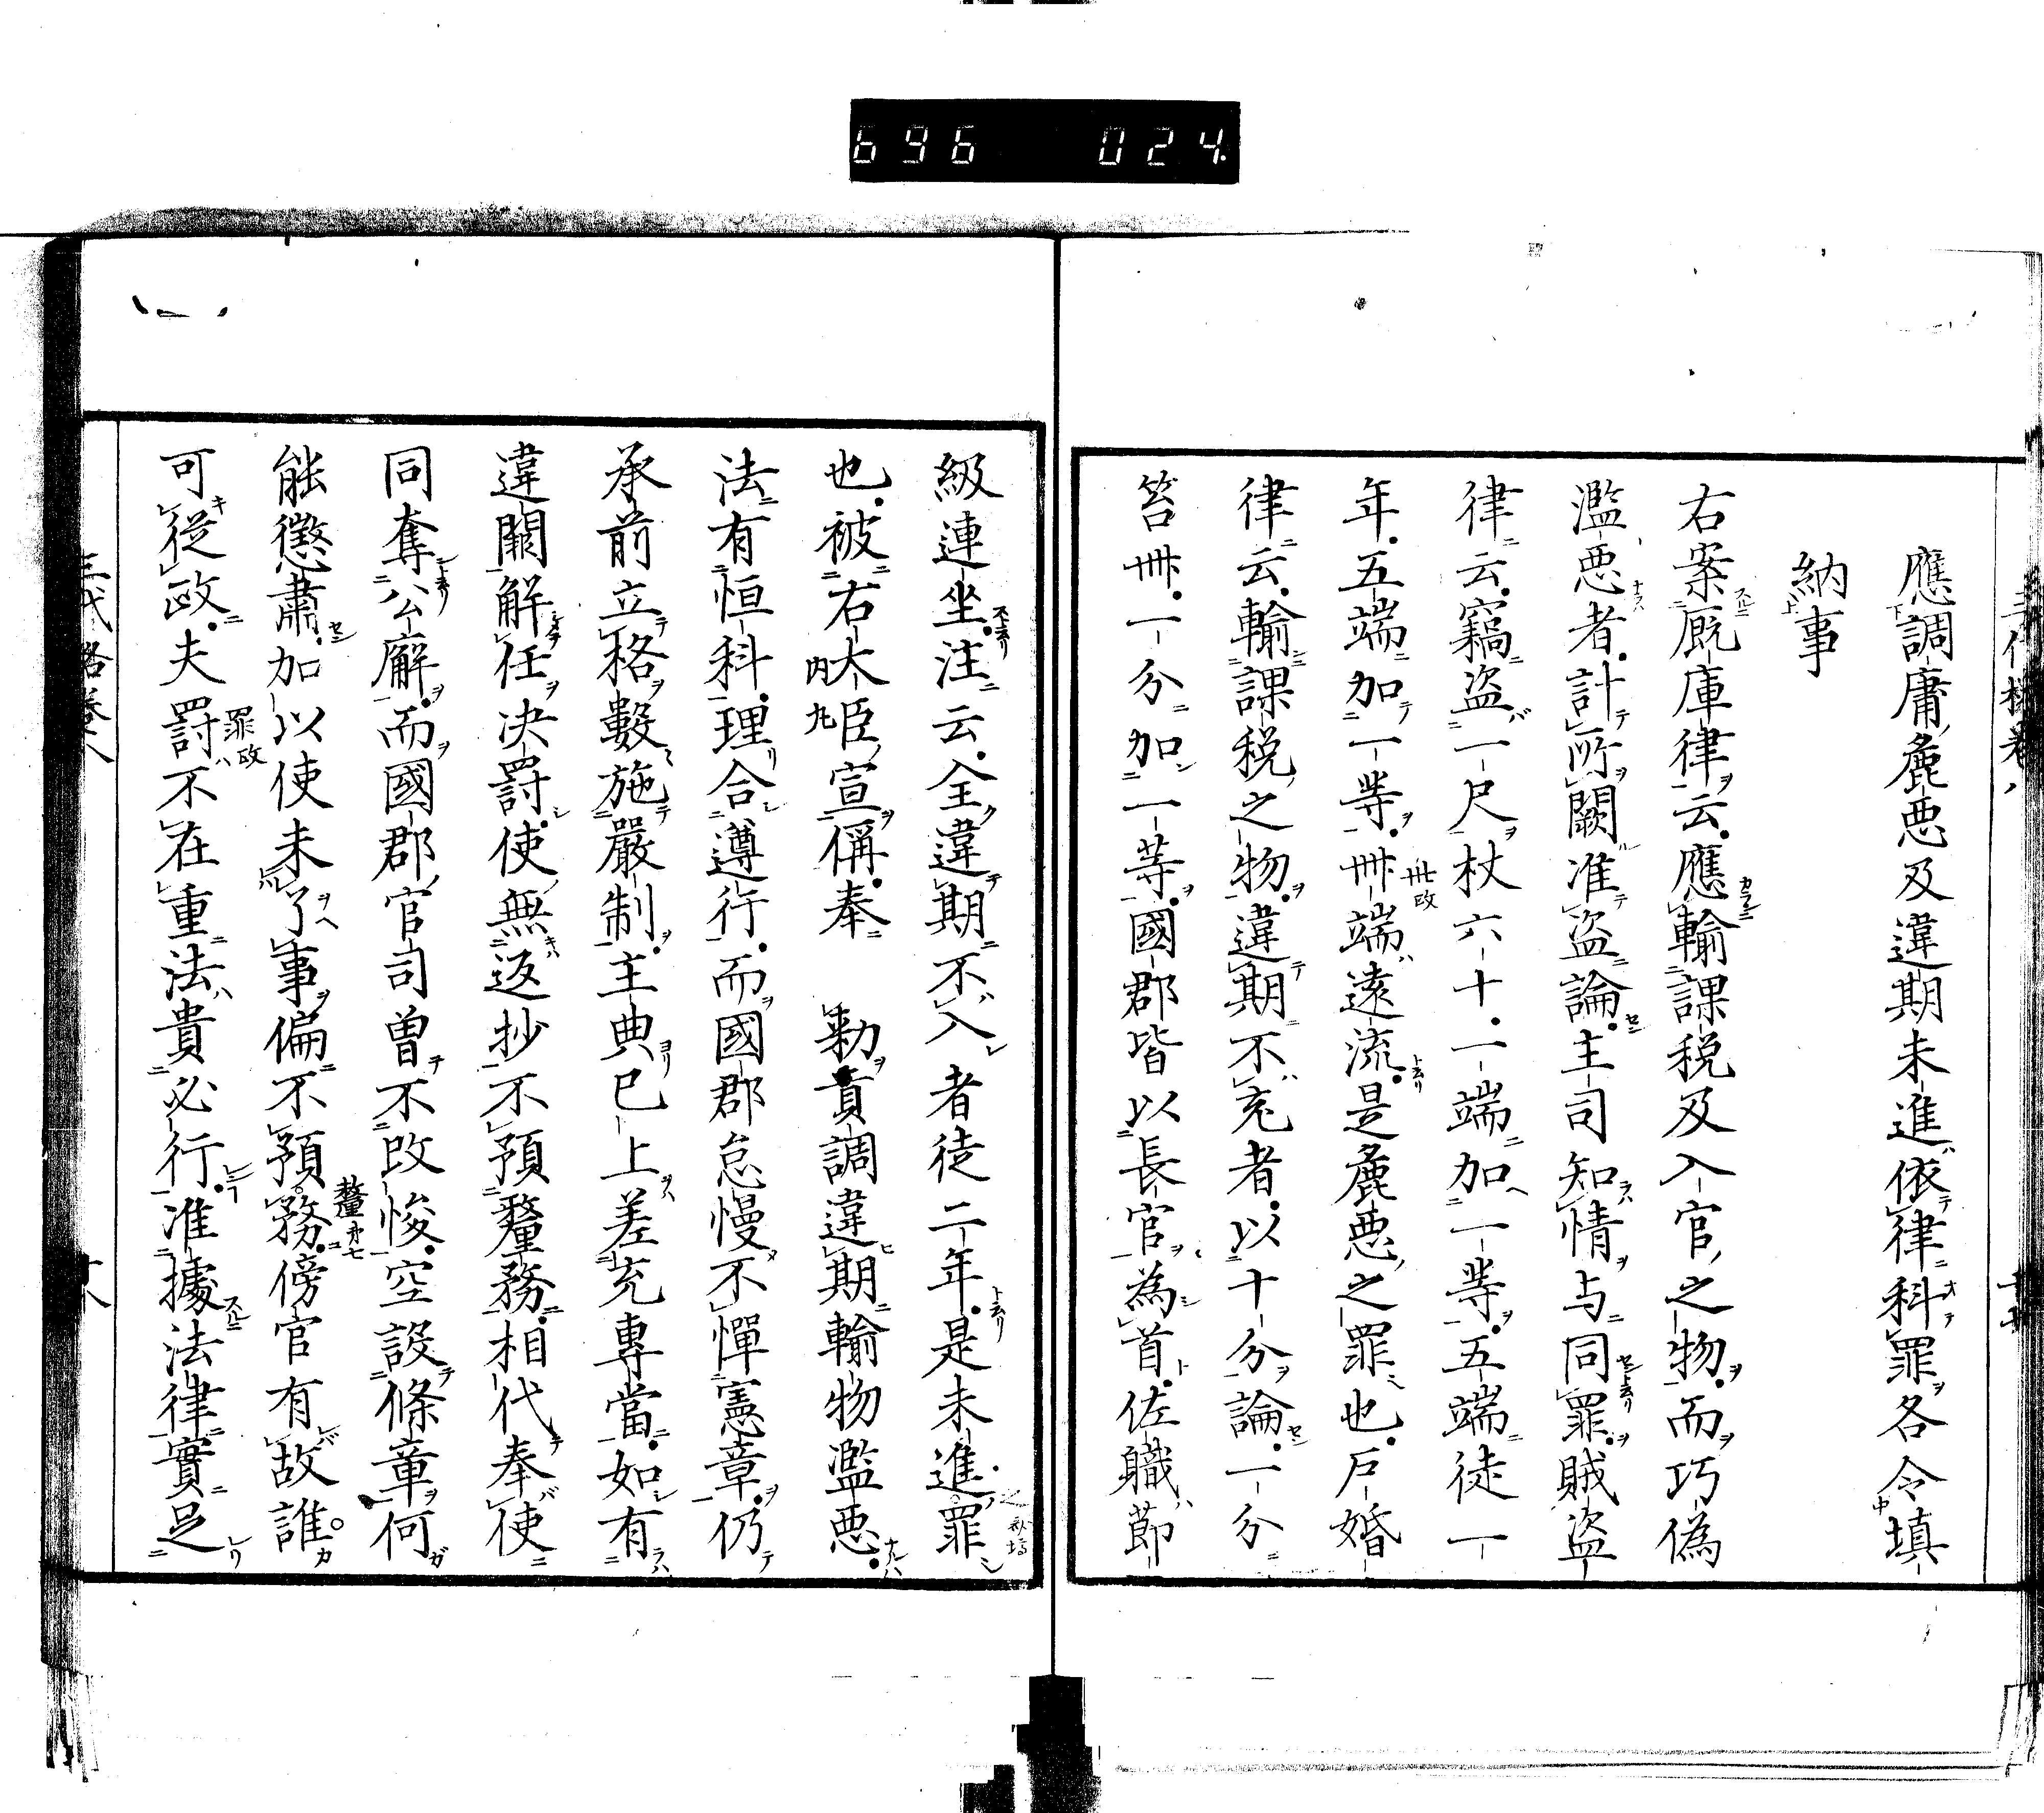 696 024
應調庸麁悪及違期未進依律科罪各令填
納事
右案厩庫律云應輸課税及入官之物而巧偽
濫悪者計所闕准盗論主司知情与同罪賊盗
律云竊盗一尺杖六十一端加一等五端徒一
年五端加一等卅端遠流是麁悪之罪也戸婚
律云輸課税之物違期不充者以十分論一分
笞卌一分加一等國郡皆以長官為首佐職節
級連坐注云全違期不入者徒二年是未進罪
也被右大臣宣偁奉　勅貢調違期輸物濫悪
法有恒科理合遵行而國郡怠慢不憚憲章仍
承前立格數施嚴制主典已上差充專當如有
違闕解任决罸使無返抄不預釐務相代奉使
同奪公廨而國郡官司曽不改悛空設條章何
能懲肅加以使未了事偏不預務傍官有故誰
可從政夫罸不在重法貴必行准據法律實足